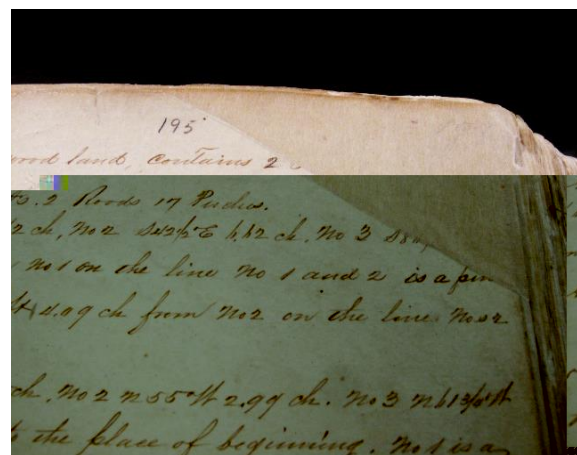 195
wood land, contains 2
2 Roods 17 Perches.
2 ch, No 2 S42½°E 6,62 ch, No 3
No 1 on the line No 1 and 2 is a
4.99 ch from No 2 on the line No
ch, No 2 N 55°W 2.99 ch. No 3
to the place of beginning. No 1 is a